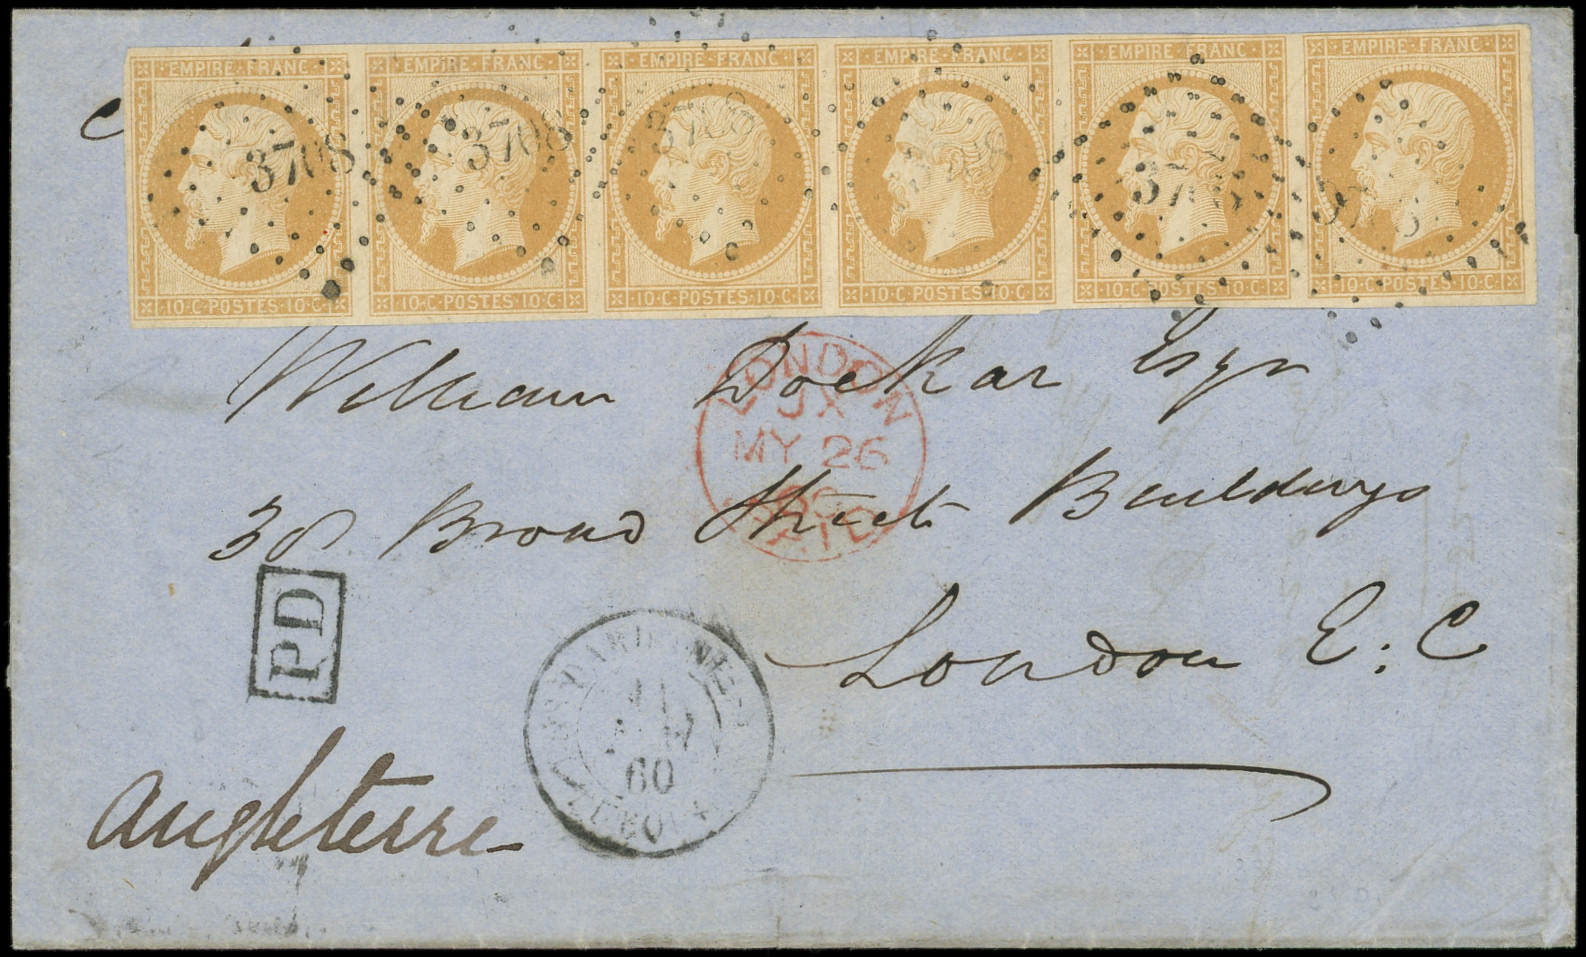 EMPIRE FRANC EMPIRE FRANC EMPIRE FRANC EMPIRE FRANC EMPIRE FRANC EMPIRE FRANC
3708 3708 3708 3708 3708 3708
10·C·POSTES·10·C· 10·C·POSTES·10·C· 10·C·POSTES·10·C· 10·C·POSTES·10·C· 10·C·POSTES·10·C· 10·C·POSTES·10·C·
William Dockar Esqr
LONDON
JX
MY 26
60
PAID
38 Broad Street Buildings
PD
London E.C
60
Angleterre